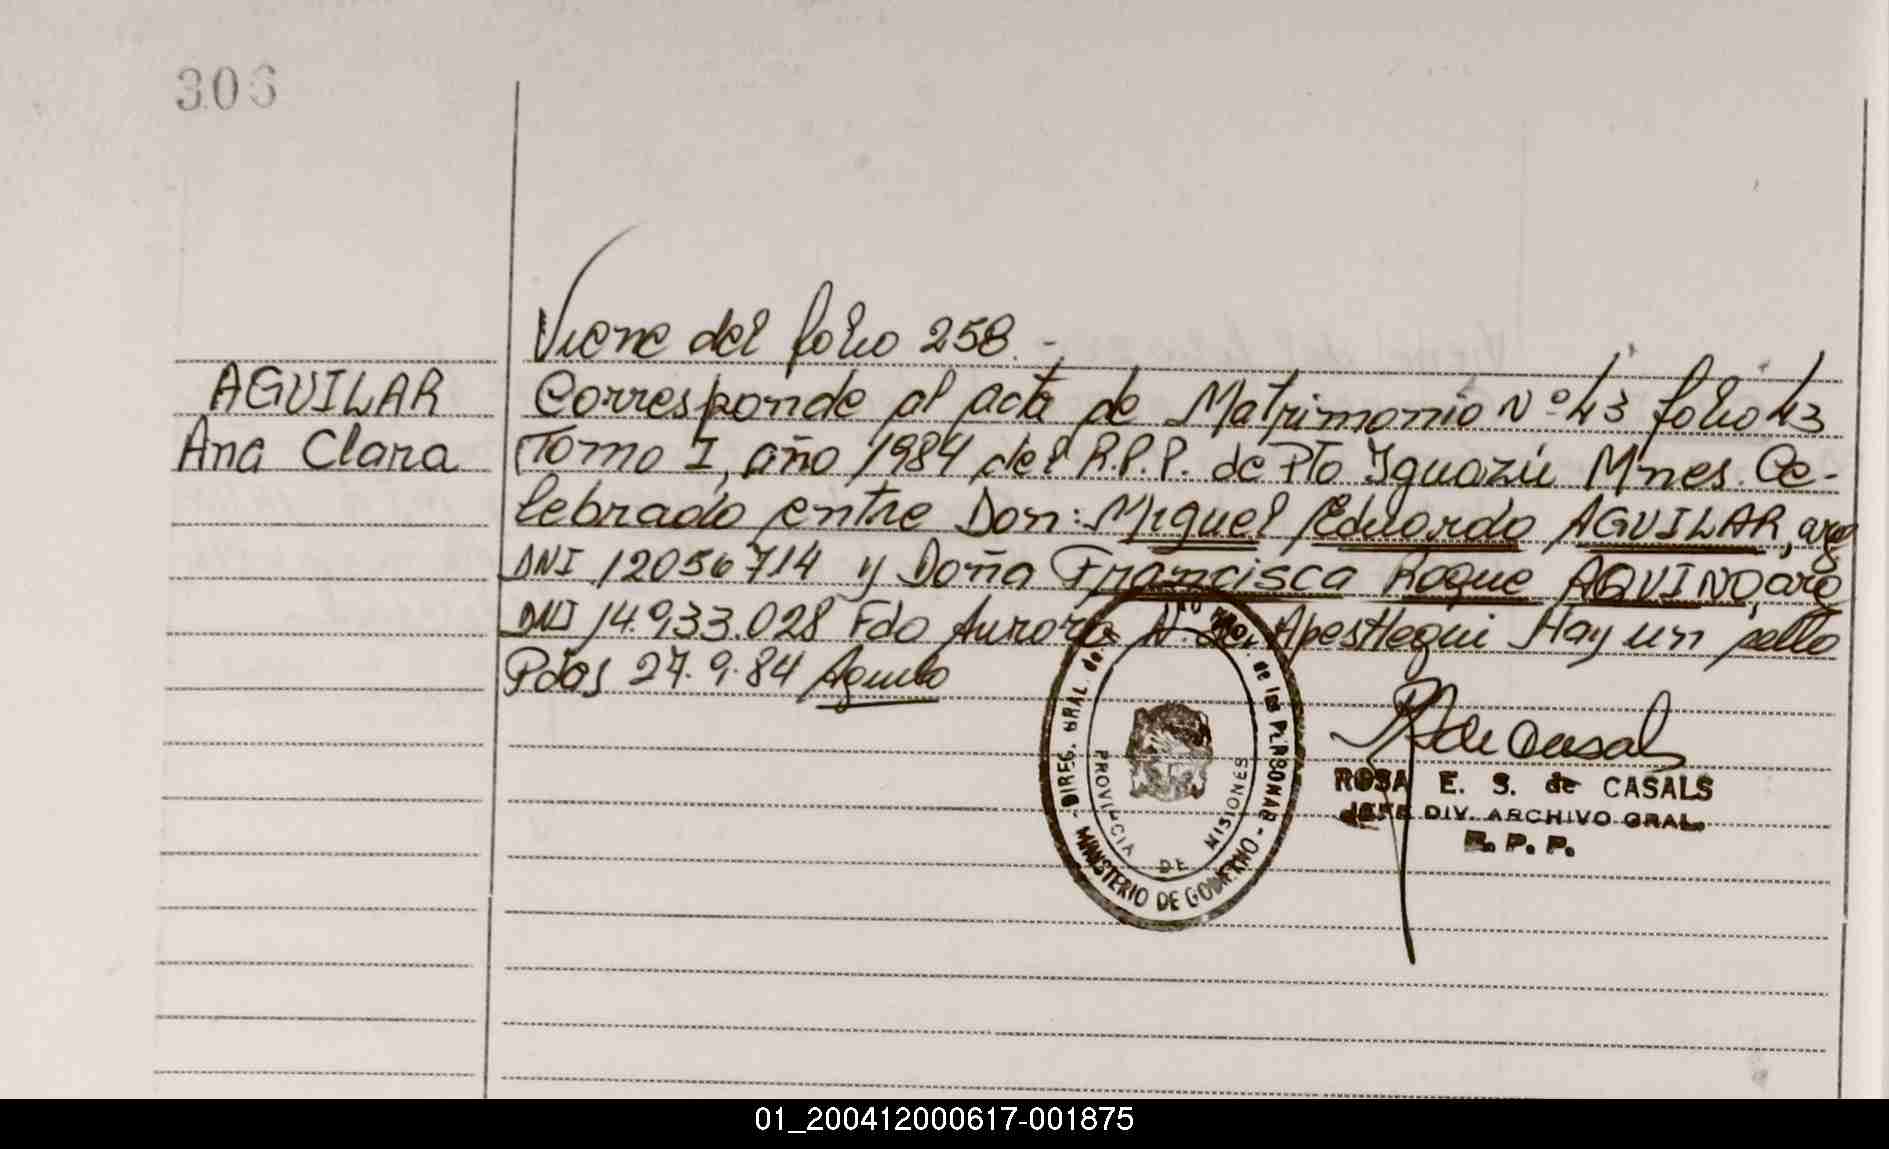 306
Viene del folio 258.-
AGUILAR
Ana Clara
Corresponde al acta de Matrimonio Nº 43 folio 43
Tomo I, año 1984 del R.P.P. de Pto Iguazú Mnes. Ce-
lebrado entre Don: Miguel Eduardo AGUILAR, arg
DNI 12056714 y Doña Francisca Roque AQUINO, arg
DNI 14.933.028 Fdo Aurora N. de Apesttegui Hay un sello
Pdas 27.9.84
DIREC. GRAL de de las PERSONAS - MINISTERIO DE GOBIERNO -
PROVINCIA DE MISIONES
ROSA E. S. de CASALS
JEFE DIV. ARCHIVO GRAL.
R. P. P.
01_200412000617-001875